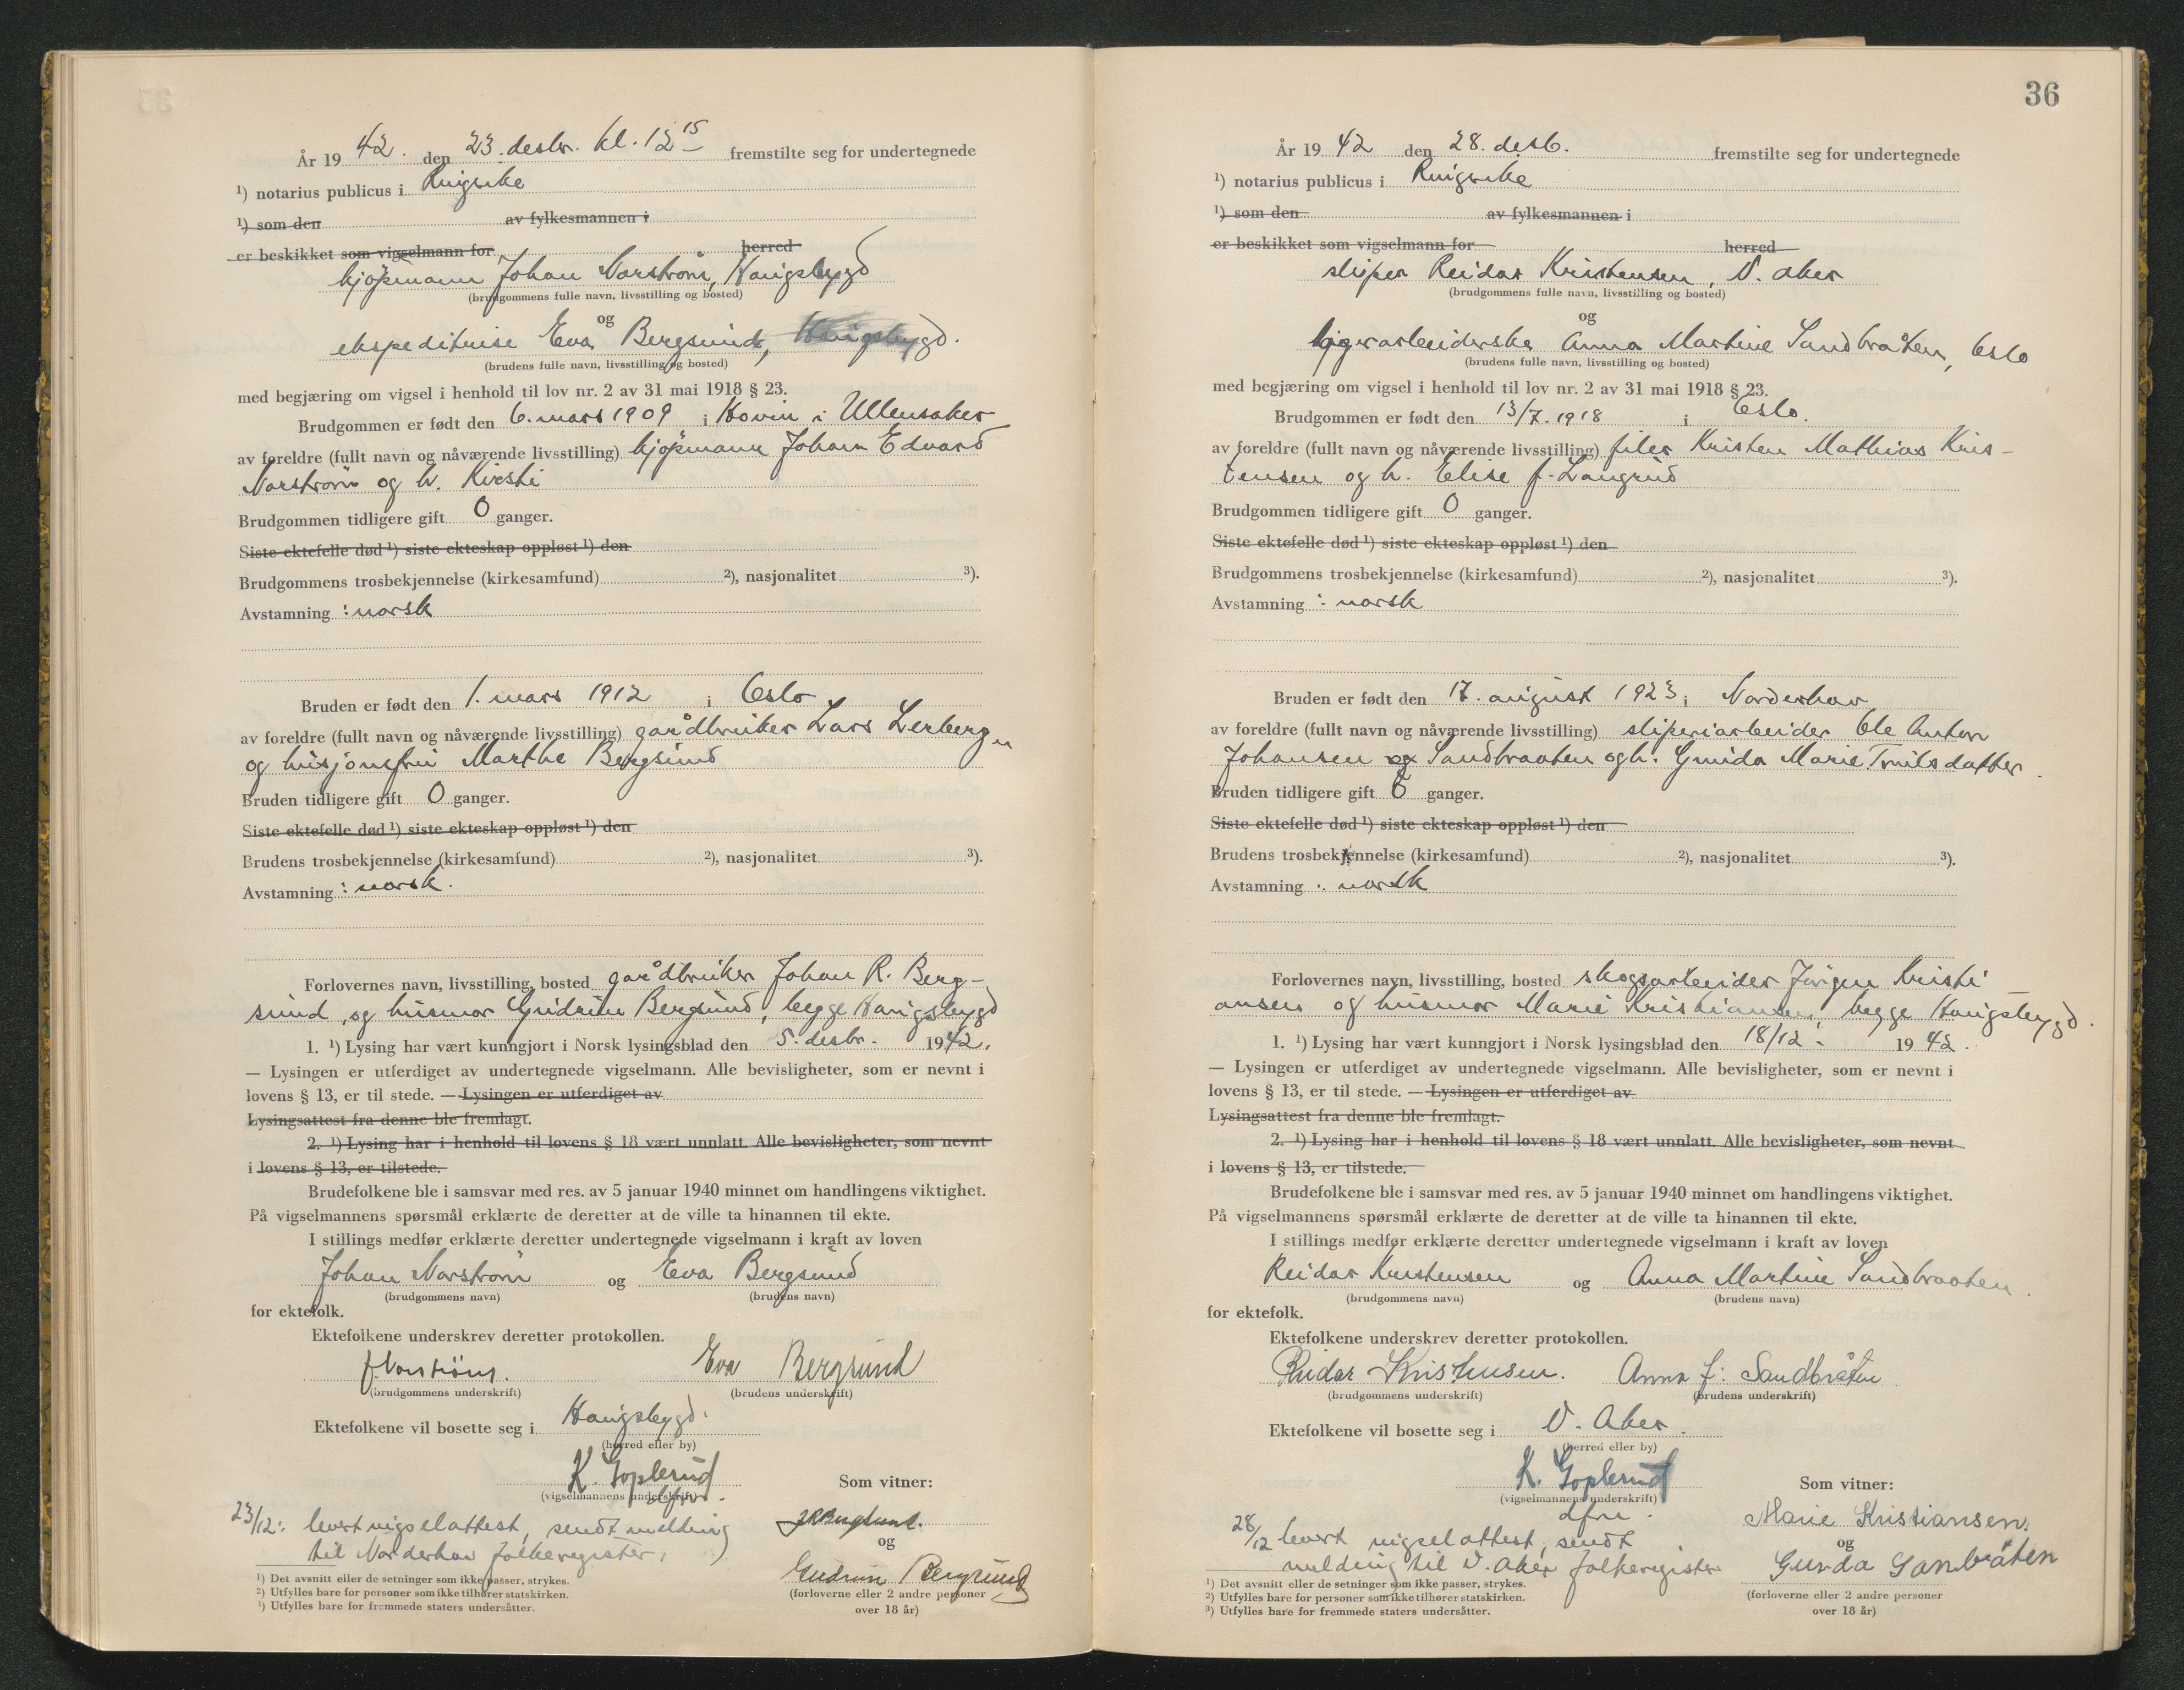 År 1942. den 23. desbr. kl. 12 15 fremstilte seg for undertegnede
¹) notarius publicus i Ringerike
¹) som den av fylkesmannen i
er beskikket som vigselmann for herred
kjøpmann Johan Norstrøm, Haugsbygd
(brudgommens fulle navn, livsstilling og bosted)
og
ekspeditrise Eva Bergsund, Haugsbygd.
(brudens fulle navn, livsstilling og bosted)
med begjæring om vigsel i henhold til lov nr. 2 av 31 mai 1918 § 23.
Brudgommen er født den 6. mars 1909 i Hovin i Ullensaker
av foreldre (fullt navn og nåværende livsstilling) kjøpmann Johan Edvard
Norstrøm og h. Kirsti
Brudgommen tidligere gift 0 ganger.
Siste ektefelle død ¹) siste ekteskap oppløst ¹) den
Brudgommens trosbekjennelse (kirkesamfund) ²), nasjonalitet ³).
Avstamning : norsk
Bruden er født den 1. mars 1912 i Oslo
av foreldre (fullt navn og nåværende livsstilling) gårdbruker Lars Lerbergn
og husjomfru Marthe Bergsund
Bruden tidligere gift 0 ganger.
Siste ektefelle død ¹) siste ekteskap oppløst ¹) den
Brudens trosbekjennelse (kirkesamfund) ²), nasjonalitet ³).
Avstamning : norsk.
Forlovernes navn, livsstilling, bosted gårdbruker Johan R. Berg-
sund, og husmor Gudrun Bergsund, begge Haugsbygd
1. ¹) Lysing har vært kunngjort i Norsk lysingsblad den 5. desbr. 1942.
— Lysingen er utferdiget av undertegnede vigselmann. Alle bevisligheter, som er nevnt i
lovens § 13, er til stede. — Lysingen er utferdiget av
Lysingsattest fra denne ble fremlagt.
2. ¹) Lysing har i henhold til lovens § 18 vært unnlatt. Alle bevisligheter, som nevnt
i lovens § 13, er tilstede.
Brudefolkene ble i samsvar med res. av 5 januar 1940 minnet om handlingens viktighet.
På vigselmannens spørsmål erklærte de deretter at de ville ta hinannen til ekte.
I stillings medfør erklærte deretter undertegnede vigselmann i kraft av loven
Johan Norstrøm og Eva Bergsund
(brudgommens navn) (brudens navn)
for ektefolk.
Ektefolkene underskrev deretter protokollen.
J. Norstrøm. Eva Bergsund
(brudgommens underskrift) (brudens underskrift)
Ektefolkene vil bosette seg i Haugsbygd.
(herred eller by)
K. Goplerud
(vigselmannens underskrift)
dfm.
Som vitner:
23/12: levert vigselattest, sendt melding
til Norderhov folkeregister.
J R Bergsund.
og
Gudrun Bergsund
(forloverne eller 2 andre personer
over 18 år)
¹) Det avsnitt eller de setninger som ikke passer, strykes.
²) Utfylles bare for personer som ikke tilhører statskirken.
³) Utfylles bare for fremmede staters undersåtter.
36
År 1942 den 28. desb. fremstilte seg for undertegnede
¹) notarius publicus i Ringerike
¹) som den av fylkesmannen i
er beskikket som vigselmann for herred
sliper Reidar Kristensen, V. Aker
(brudgommens fulle navn, livsstilling og bosted)
og
lagerarbeiderske Anna Martine Sandbråten, Oslo
(brudens fulle navn, livsstilling og bosted)
med begjæring om vigsel i henhold til lov nr. 2 av 31 mai 1918 § 23.
Brudgommen er født den 13/7. 1918 i Oslo.
av foreldre (fullt navn og nåværende livsstilling) filer Kristen Mathias Kris-
tensen og h. Elise f. Langrud
Brudgommen tidligere gift 0 ganger.
Siste ektefelle død ¹) siste ekteskap oppløst ¹) den
Brudgommens trosbekjennelse (kirkesamfund) ²), nasjonalitet ³).
Avstamning : norsk
Bruden er født den 17. august 1923 i Norderhov
av foreldre (fullt navn og nåværende livsstilling) sliperiarbeider Ole Anton
Johansen og Sandbraaten og h. Gunda Marie Truilsdatter.
Bruden tidligere gift 0 ganger.
Siste ektefelle død ¹) siste ekteskap oppløst ¹) den
Brudens trosbekjennelse (kirkesamfund) ²), nasjonalitet ³).
Avstamning : norsk
Forlovernes navn, livsstilling, bosted skogsarbeider Jörgen Kristi
ansen og husmor Marie Kristiansen, begge Haugsbygd.
1. ¹) Lysing har vært kunngjort i Norsk lysingsblad den 18/12. 1942.
— Lysingen er utferdiget av undertegnede vigselmann. Alle bevisligheter, som er nevnt i
lovens § 13, er til stede. — Lysingen er utferdiget av
Lysingsattest fra denne ble fremlagt.
2. ¹) Lysing har i henhold til lovens § 18 vært unnlatt. Alle bevisligheter, som nevnt
i lovens § 13, er tilstede.
Brudefolkene ble i samsvar med res. av 5 januar 1940 minnet om handlingens viktighet.
På vigselmannens spørsmål erklærte de deretter at de ville ta hinannen til ekte.
I stillings medfør erklærte deretter undertegnede vigselmann i kraft av loven
Reidar Kristensen og Anna Martine Sandbraaten.
(brudgommens navn) (brudens navn)
for ektefolk.
Ektefolkene underskrev deretter protokollen.
Reidar Kristensen. Anna J. Sandbråten
(brudgommens underskrift) (brudens underskrift)
Ektefolkene vil bosette seg i V. Aker.
(herred eller by)
K. Goplerud
(vigselmannens underskrift)
dfm.
Som vitner:
28/12 levert vigselattest, sendt
melding til V. Aker folkeregister
Marie Kristiansen.
og
Gunda Sanbråten
(forloverne eller 2 andre personer
over 18 år)
¹) Det avsnitt eller de setninger som ikke passer, strykes.
²) Utfylles bare for personer som ikke tilhører statskirken.
³) Utfylles bare for fremmede staters undersåtter.